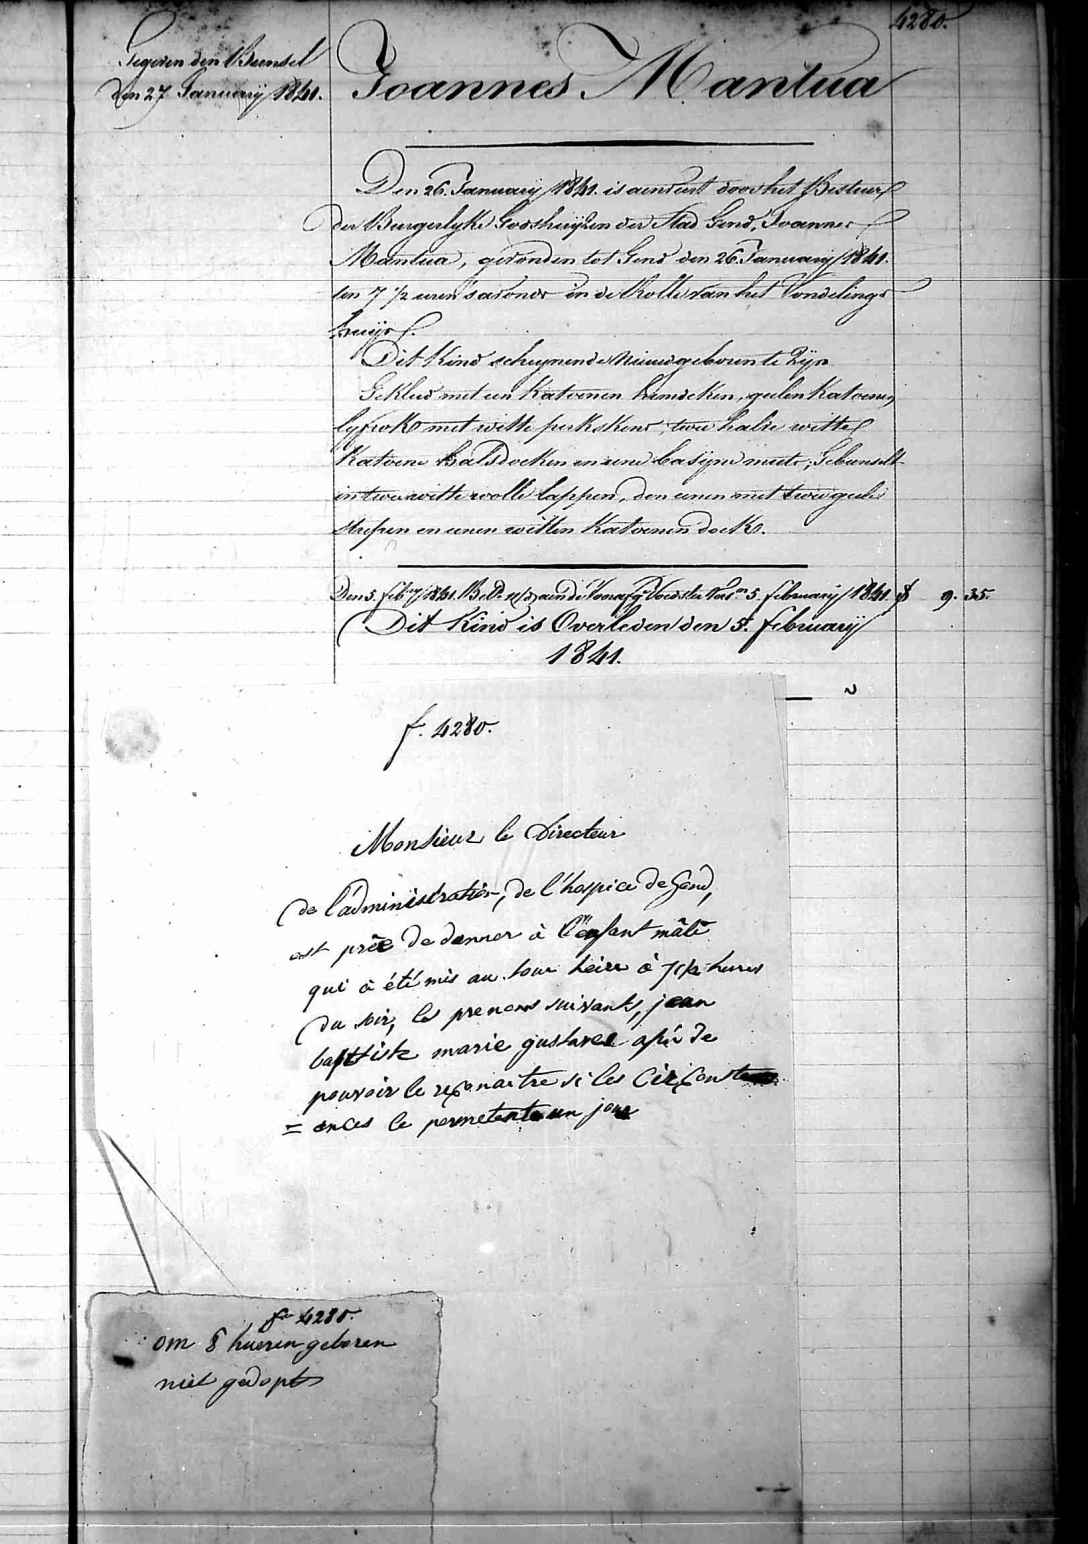 4280.
Gegeven den Bunsel
den 27 Januarij 1841.
Joannes Mantua
Den 26. Januarij 1841. is aenveirt door het Bestuur
der Burgerlyke Godshuijzen der Stad Gend, Joannes
Mantua, gevonden tot Gend den 26. Januarij 1841.
ten 7 1/2 uren 's avonds in de Rolle van het Vondelings
huijs.
Dit Kind schynende nieuwgeboren te zijn
Gekleed met een Katoenen hemdeken, geelen Katoenen
lyfrok met witte perkskens, twee halve witte
Katoene halsdoeken en eene basijne muts; Gebunselt
in twee witte wolle lappen, den eenen met twee geele
strepen en eenen witten Katoenen doek.
Den 5. feb.ry 1841. Bet. aen de Voedster 5. february 1841. 9. 35.
Dit Kind is Overleden den 5. february
1841.
f. 4280.
Monsieur le Directeur
de l'administration, de l'hospice de Gand,
est priée de donner à l'enfant mâle
qui à été mis au tour heier à 7 1/2 heures
du soir, les prenoms suivants, jean
baptiste marie gustave afin de
pouvoir le reconaitre si les circonst
= ances le permetente un jour
f. 4280.
om 8 hueren geboren
niet gedopt